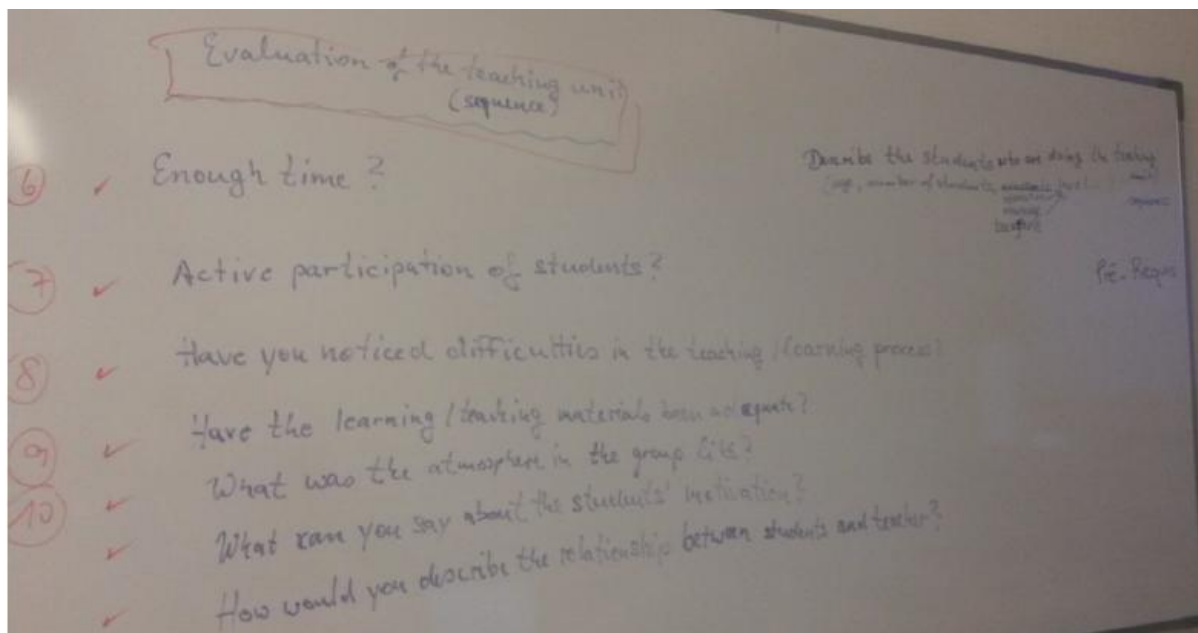 Evaluation of the teaching unit
(sequence)
6 ✓ Enough time?
7 ✓ Active participation of students?
8 ✓ Have you noticed difficulties in the teaching / learning process?
9 ✓ Have the learning / teaching materials been adequate?
10 ✓ What was the atmosphere in the group like?
✓ What can you say about the students' motivation?
✓ How would you describe the relationship between students and teacher?
Describe the students who are doing the teaching
unit
(age, number of students,
sequence
Pré-Requis